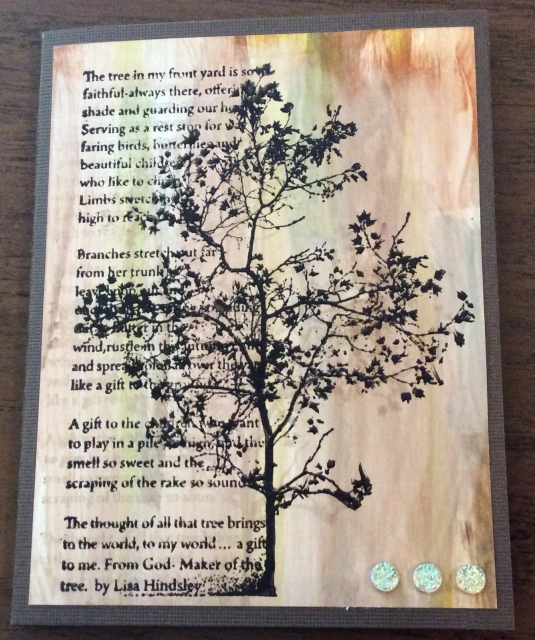 The tree in my front yard is so
faithful-always there, offeri
shade and guarding our ho
Serving as a rest stop for
faring birds, butterflies and
beautiful childre
who like to cli
Limbs stretching
high to reach
Branches stretch out far
from her trunk
leav
in the
wind, rustle in the
and spread over the
like a gift to the
A gift to the children who want
to play in a pile so high, and the
smell so sweet and the
scraping of the rake so sound
The thought of all that tree brings
to the world, to my world... a gift
to me. From God- Maker of the
tree. by Lisa Hindsley